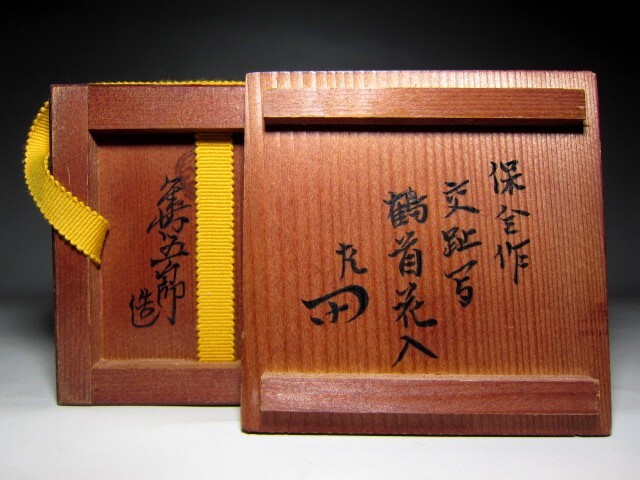 保全作
交趾写
鶴首花入
左
五郎
造